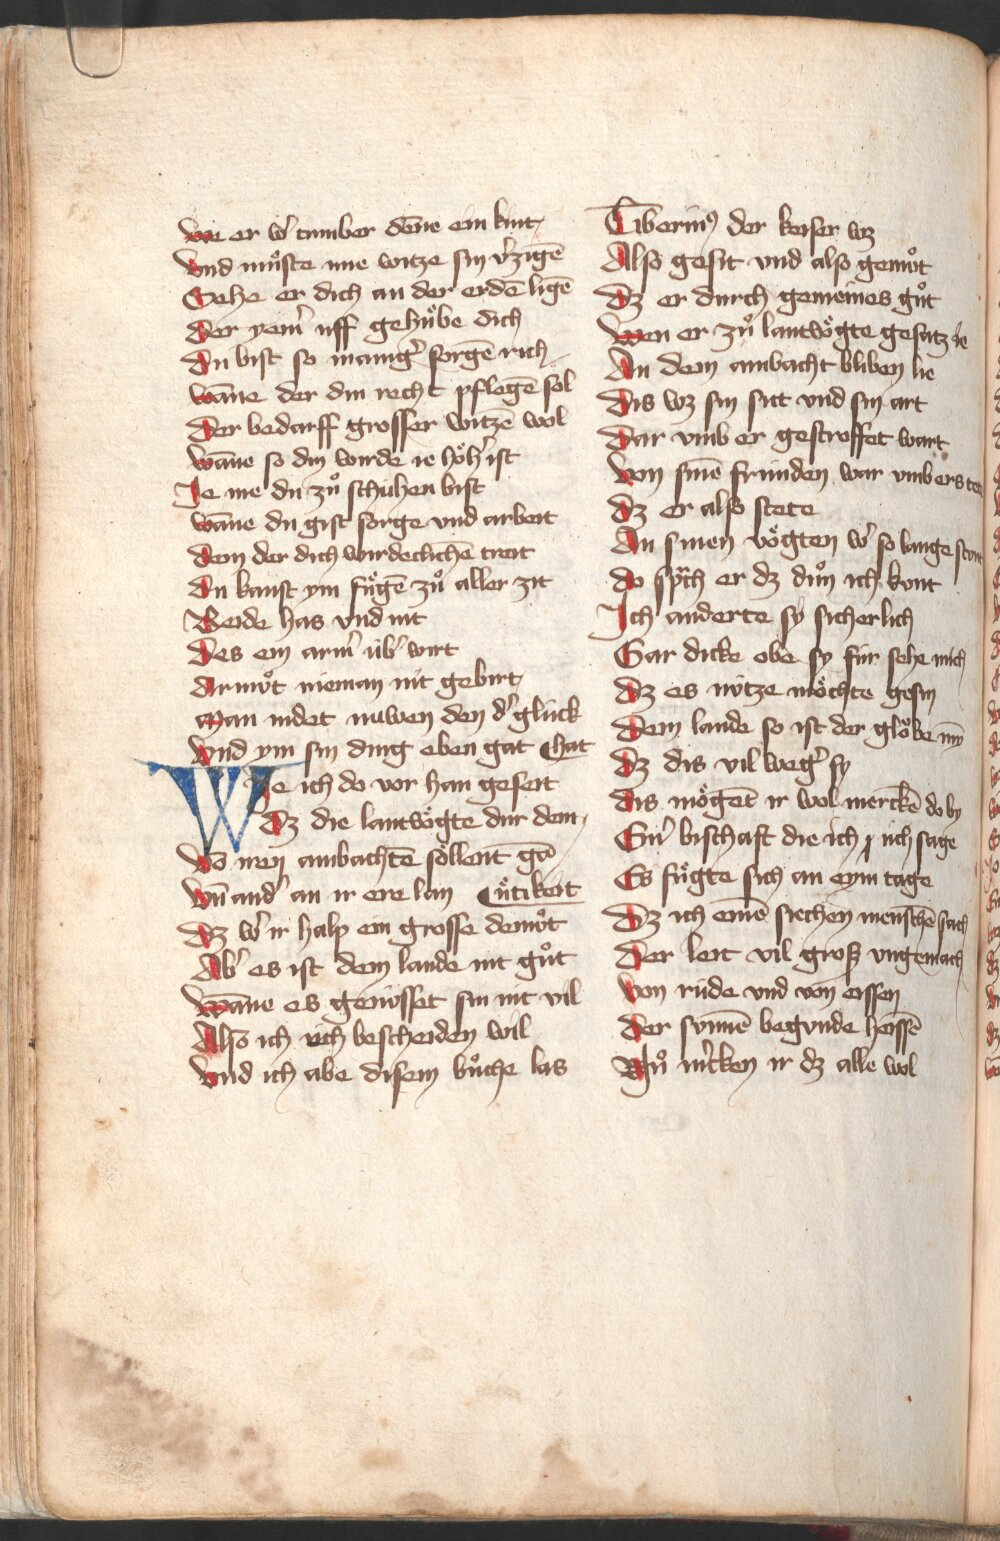 We er w͛ tumber dēne ein kint
Vnd muͦste me witze sin v͛zigē
Sehe er dich an der erdē ligē
Der yem͛ uff gehuͤbe dich
Du bist so manig͛ sorgē rich
Wāne der din recht pflegē sol
Der bedarff grosser witzē wol
Wāne so din wirde ie hoͤh͛ ist
Je me du zuͦ schuhen bist
Wāne du gist sorge vnd arbeit
Dem der dich wirdeclichē treit
Du kanst ym fuͤgē zuͦ aller zit
Beide has vnd nit
Des ein arm͛ üb͛ wirt
Armuͦt nieman nit gebirt
Man nidet nuwen den d͛ glück
Vnd ym sin ding eben gat hat
WJe ich do vor han geseit
Dz die lantvoͤgte dur dem
Vō irem ambachtē soͤllent gā
Vn̄ and͛ an ir ere lan uͤtikeit
Dz w͛ ir halp ein grosse demuͦt
Ab͛ es ist dem lande nit guͦt
Wāne es genüsset sin nit vil
Also ich üch bescheiden wil
Vnd ich abe disem buͦche las
Tiberiuꝰ der keiser wz
Also gesit vnd also gemuͦt
Dz er durch gemeines guͦt
Wen er zuͦ lantvoͤgte gesatz ie
An dem ambacht bliben lie
Dis wz sin sitt vnd sin art
Dar vmb er gestroffet wart
Von sinē fründen war vmb ers tet
Dz er also stete
An sinen voͤgten w͛ so lange stunt
Do sprach er dz duͦn ich kunt
Ich anderte sy sicherlich
Gar dicke obe sy für sehe mich
Dz es nütze moͤchte gesin
Dem lande so ist der gloͮbe min
Dz dis vil weg͛ sy
Dis moͤgēt ir wol merckē do by
Ein͛ bischaft die ich üch sage
Es fuͤgte sich an eym tage
Dz ich einē siechen menschē sach
Der leit vil groß vngemach
Von rüde vnd von eissen
Der sunnē begunde heissē
Nuͦ m͛cken ir dz alle wol